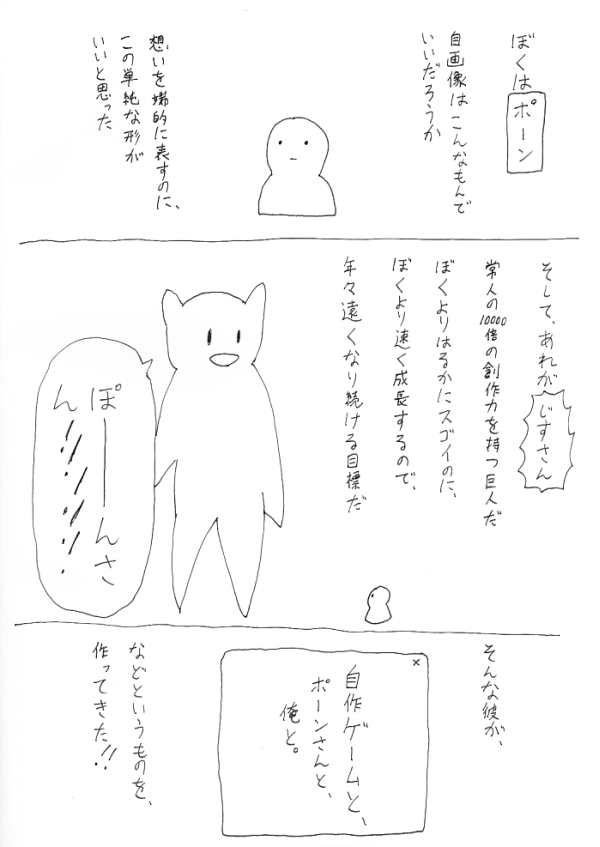 ぼくはポーン
自画像はこんなもんで
いいだろうか
想いを端的に表すのに、
この単純な形が
いいと思った
そして、あれがじすさん
常人の10000倍の創作力を持つ巨人だ
ぼくよりはるかにスゴイのに、
ぼくより速く成長するので、
年々遠くなり続ける目標だ
ぽーーんさ
ん!!!!!!
そんな彼が、
×
自作ゲームと、
ポーンさんと、
俺と。
などというものを、
作ってきた!!